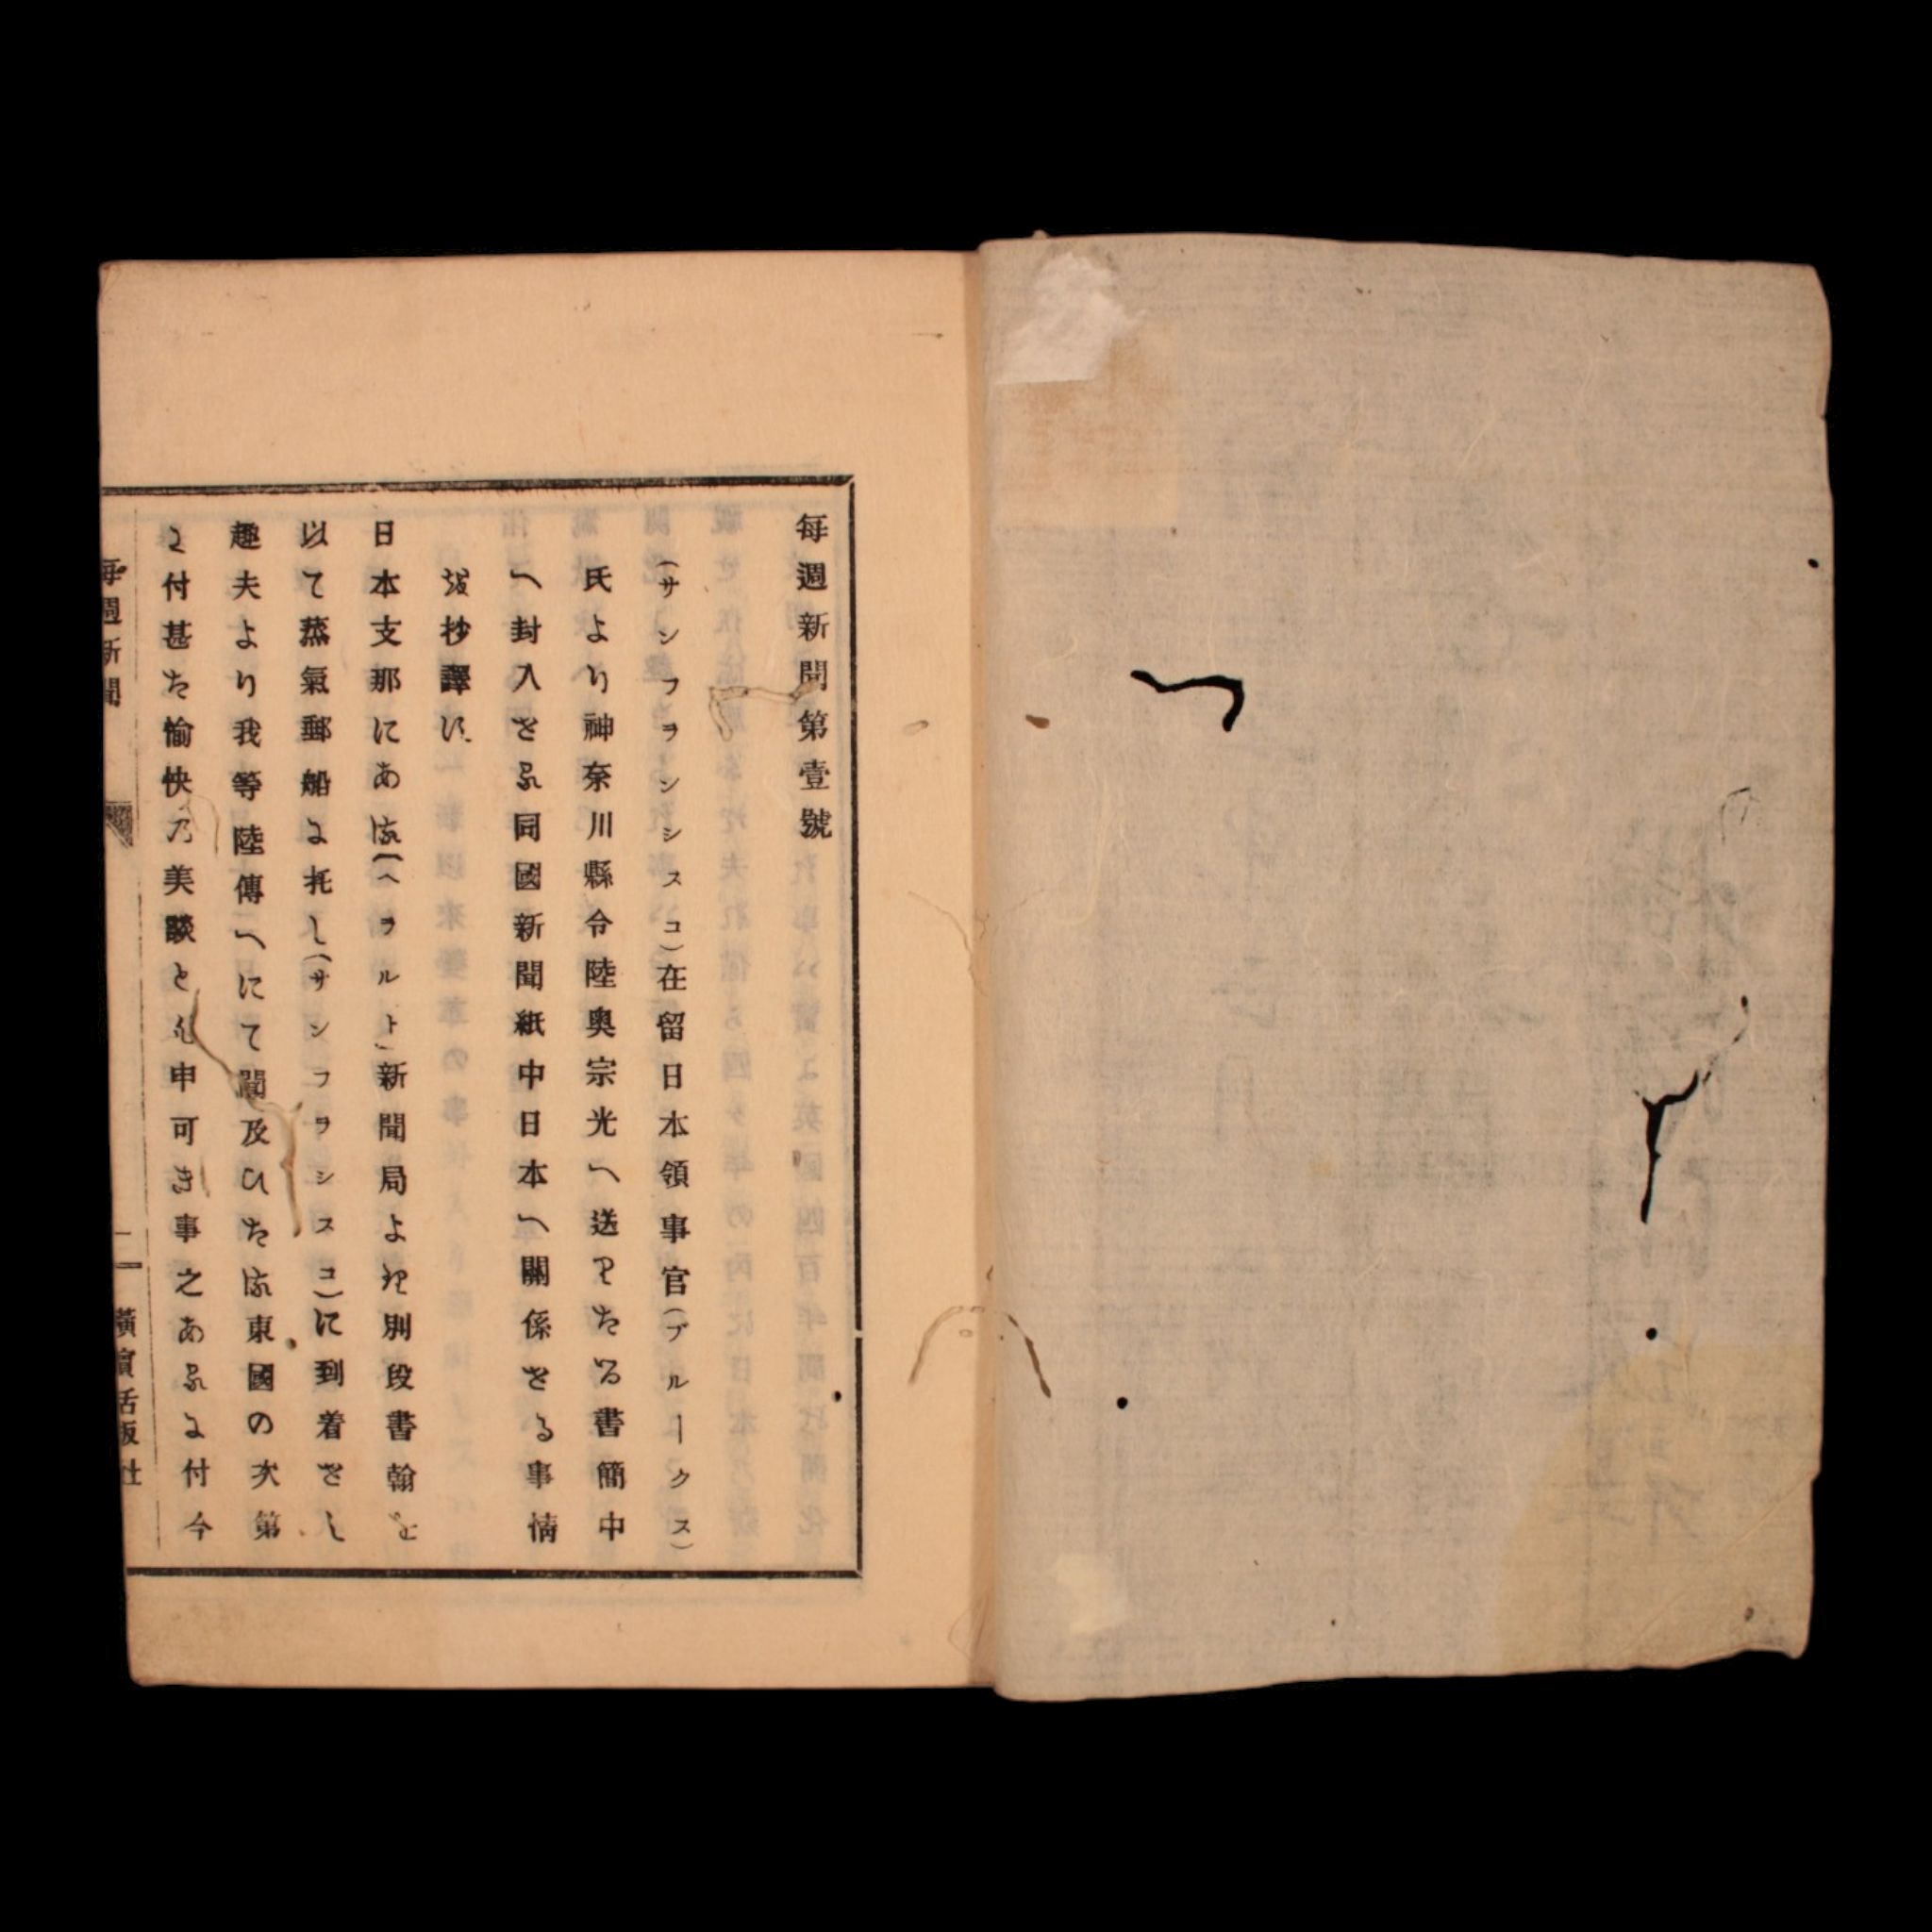 毎週新聞第壹號
(サンフヲンシスコ)在留日本領事官(ブルークス)
氏より神奈川縣令陸奥宗光へ送りたる書簡中
へ封入せる同國新聞紙中日本へ關係せる事情
を抄譯す
日本支那にある(ヘラルト)新聞局より別段書翰を
以て蒸氣郵船に托し(サンフヲンシスコ)に到着せし
趣夫より我等陸傳へにて聞及ひたる東國の次第
に付甚た愉快乃美談とも申可き事之あるに付今
毎週新聞
二
横濵活版社